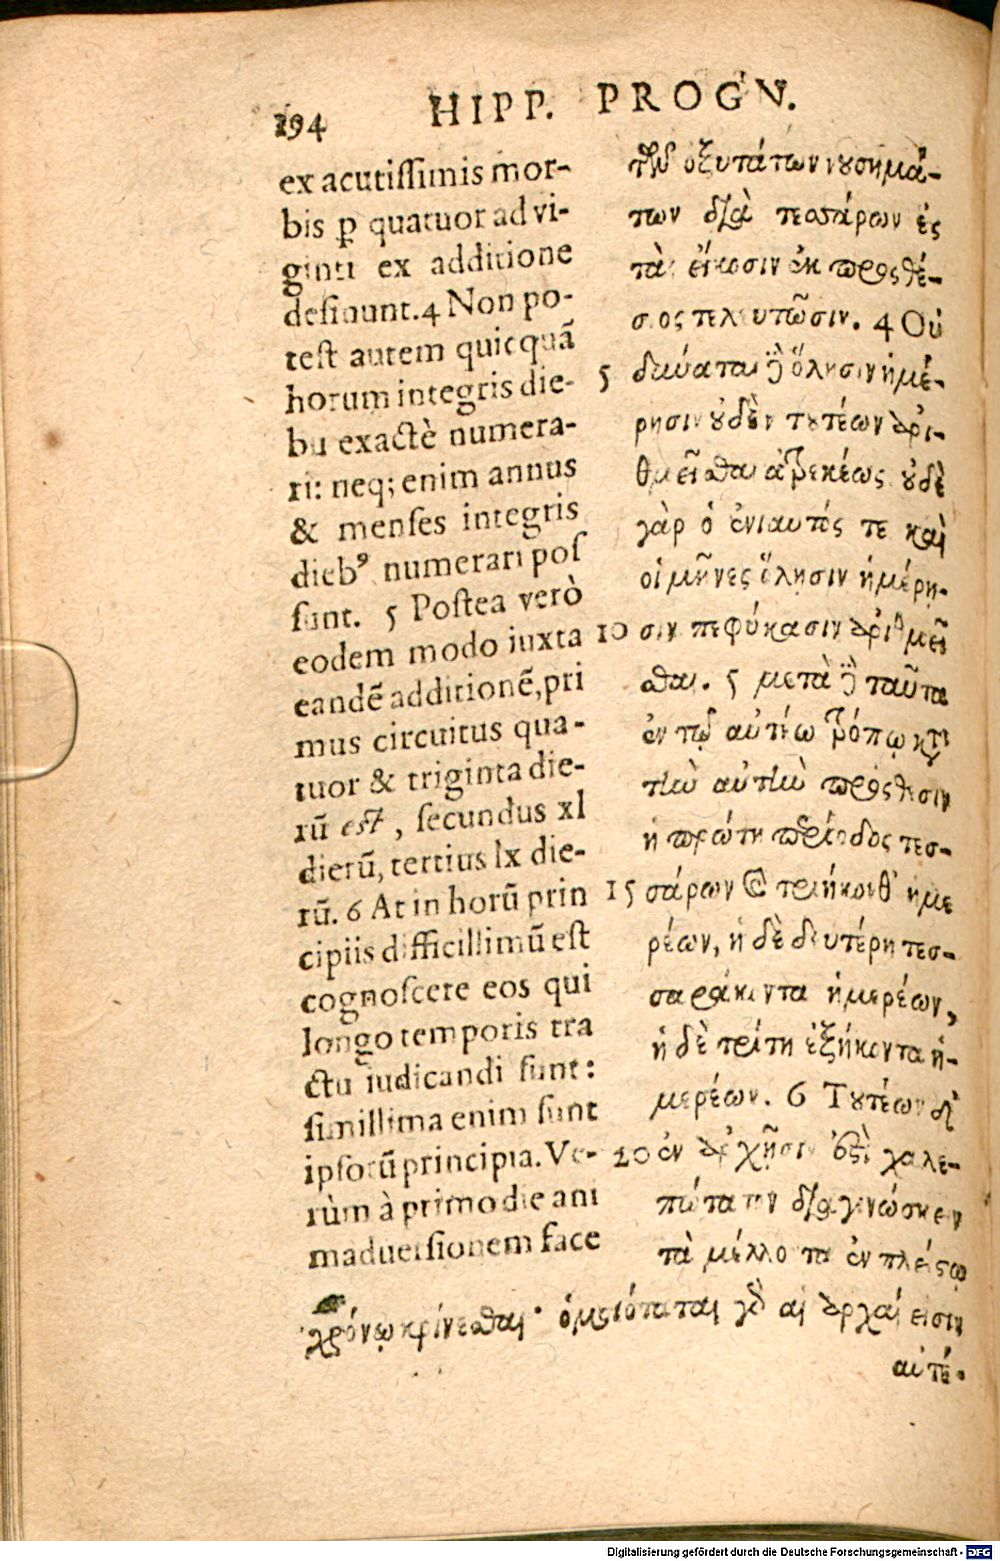 194
HIPP. PROGN.
ex acutissimis mor-
bis ꝑ quatuor ad vi-
ginti ex additione
desinunt. 4 Non po-
test autem quicquã
horum integris die-
bu exactè numera-
ri: neq; enim annus
& menses integris
dieb⁹ numerari pos
sunt. 5 Postea verò
eodem modo iuxta
eandẽ additionẽ, pri
mus circuitus qua-
tuor & triginta die-
rũ est, secundus xl
dierũ, tertius lx die-
rũ. 6 At in horũ prin
cipiis difficillimũ est
cognoscere eos qui
longo temporis tra
ctu iudicandi sunt:
simillima enim sunt
ipsorũ principia. Ve-
rùm à primo die ani
maduersionem face
τῶν ὀξυτάτων νουσημά-
των διὰ τεσσάρων ἐς
τὰς εἴκοσιν ἐκ προςθέ-
σιος τελευτῶσιν. 4 Οὐ
5 δύναται δὲ ὅλῃσιν ἡμέ-
ρῃσιν οὐδὲν τουτέων ἀρι-
θμεῖσθαι ἀτρεκέως οὐδὲ
γὰρ ὁ ἐνιαυτός τε καὶ
οἱ μῆνες ὅλῃσιν ἡμέρῃ-
10 σιν πεφύκασιν ἀριθμεῖ
σθαι. 5 μετὰ δὲ ταῦτα
ἐν τῷ αὐτέῳ τρόπῳ κτ̀
τὴν αὐτὴν πρόςθεσιν
ἡ πρώτη περίοδος τεσ-
15 σάρων καὶ τριήκονθ᾽ ἡμε
ρέων, ἡ δὲ δευτέρη τεσ-
σαράκοντα ἡμερέων,
ἡ δὲ τρίτη ἑξήκοντα ἡ-
μερέων. 6 Τουτέων δ᾽
20 ἐν ἀρχῇσιν ἐστὶ χαλε-
πώτατον διαγινώσκειν
τὰ μέλλοντα ἐν πλείστῳ
χρόνῳ κρίνεσθαι· ὁμοιόταται γὰρ αἱ ἀρχαί εἰσιν
αὐτέ-
Digitalisierung gefördert durch die Deutsche Forschungsgemeinschaft - DFG